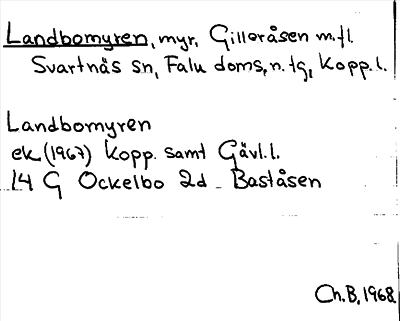 Landbomyren, myr, Gilleråsen m.fl.
Svartnäs sn, Falu doms. n. tg, Kopp. l.
Landbomyren
ek (1967) Kopp. samt Gävl. l.
14 G Ockelbo 2d - Baståsen
Ch.B, 1968